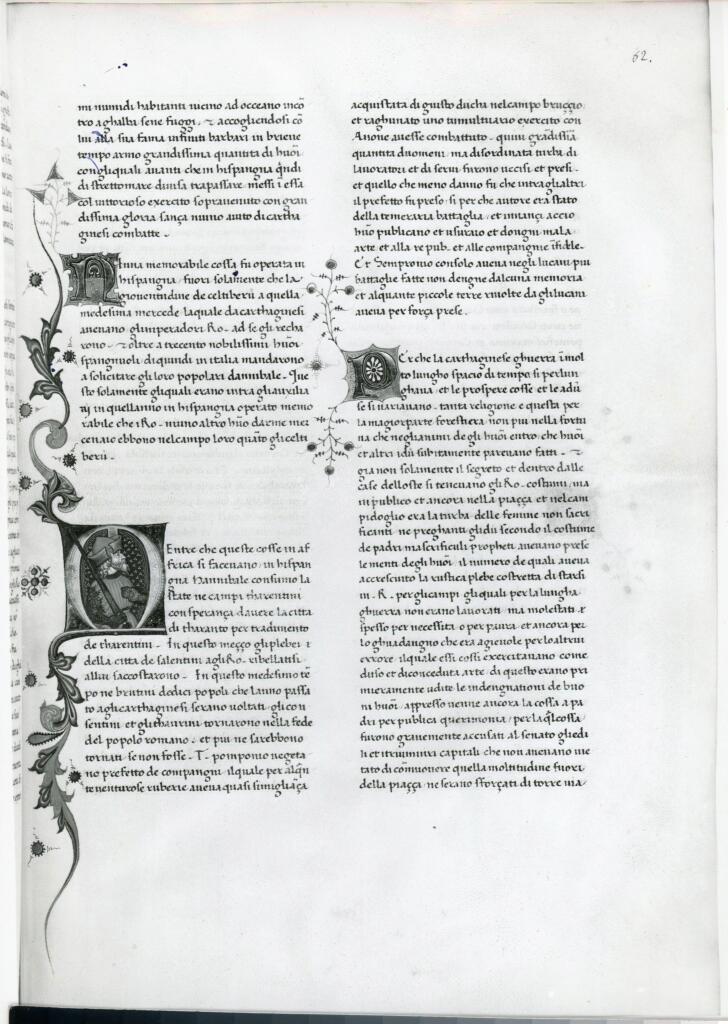 62.
mi numidi habitanti uicino ad occeano incō
tro a ghalba sene fuggi, ⁊ accogliendosi cō
lui alla sua fama infiniti barbari in brieue
tempo armo grandissima quantita di huoī
con gli quali auanti che in hispangna q̄ndi
di strettomare diuisa trapassare messi i essa
col uittorioso exercito soprauenuto con gran
dissima gloria sança niuno aiuto di cartha
ginesi combatte.
Niuna memorabile cossa fu operata in
hispangna, fuori solamente che la
giouentudine de celtiberii a quella
medesima mercede la quale da carthaginesi
aueano gl imperadori Ro. ad se gli recha
rono. ⁊ oltre a trecento nobilissimi huoī
spangnuoli di quindi in italia mandarono
a solicitare gli loro popolari d annibale. Que
sto solamente gli quali erano intra gli auxilia
rii in quell anno in hispangna operato memo
rabile che i Ro. niuno altro huō d arme mer
cenaio ebbono nel campo loro quāto gli celti
berii.
Mentre che queste cosse in af
frica si faceuano, in hispan
gna Hannibale consumo la
state ne campi tharentini
con sperança d auere la citta
di tharanto per tradimento
de tharentini. In questo meçço gli plebei ⁊
della citta de salentini agli Ro. ribellatisi
allui s accostarono. In questo medesimo tē
po ne brutini dedici popoli che l anno passa
to agli carthaginesi serano uoltati, gli con
sentini et gli thaurini tornarono nella fede
del popolo romano. et piu ne sarebbono
tornati se non fosse. T. pomponio uegeta
no prefetto de compangni, il quale per alq̄n
te uenturose ruberie auea quasi similgiāça
acquistata di giusto ducha nel campo bruçcio,
et raghunato uno tumultuario exercito con
Anone auesse combattuto. quiui grādissiā
quantita d uomeni. ma disordinata turba di
lauoratori et di serui furono uccisi et presi.
et quello che meno danno fu che intra gli altri
il prefetto fu preso, si per che autore era stato
della temeraria battaglia, et innançi accio
huō publicano et usuraio et d ongni mala
arte, et alla re pub. et alle compangnie ifidele.
Et Sempronio consolo auea negli lucani piu
battaglie fatte non dengne d alcuna memoria
et alquante piccole terre rivolte da gli lucani
auea per força prese.
Per che la carthaginese ghuerra i mol
to lungho spacio di tempo si perlun
ghaua. et le prospere cosse et le aduer
se si uariauano. tanta religione e questa per
la magior parte forestiera non piu nella fortu
na che negl animi degli huoī entro, che huoī
et altri idii subitamente pareuano fatti. ⁊
gia non solamente il segreto et dentro dalle
case dell oste si teneuano gli Ro. costumi, ma
in publico et ancora nella piaçça et nel cam
pidoglio era la turba delle femine non sacri
ficanti ne preghanti gl idii secondo il costume
de padri ma scrificuli propheti aueano prese
le menti degli huoī, il numero de quali auea
accresciuto la rustica plebe costretta di starsi
in. R. per gli campi gli quali per la lungha
ghuerra non erano lauorati ma molestati ⁊
spesso per necessita o per paura, et ancora per
lo ghuadangno che era ageuole per lo altrui
errore. il quale essi cossi exercitauano come
d uso et di conceduta arte, di questo erano pri
mieramente udite le indengnationi de buo
ni huoī. appresso uenne ancora la cossa a pa
dri per publica querimonia, per la q̄l cossa
furono grauemente accusati al senato gli edi
li et i triumuiri capitali che non aueano uie
tato di cōmouere quella moltitudine fuori
della piaçça, ne serano sforçati di torre uia